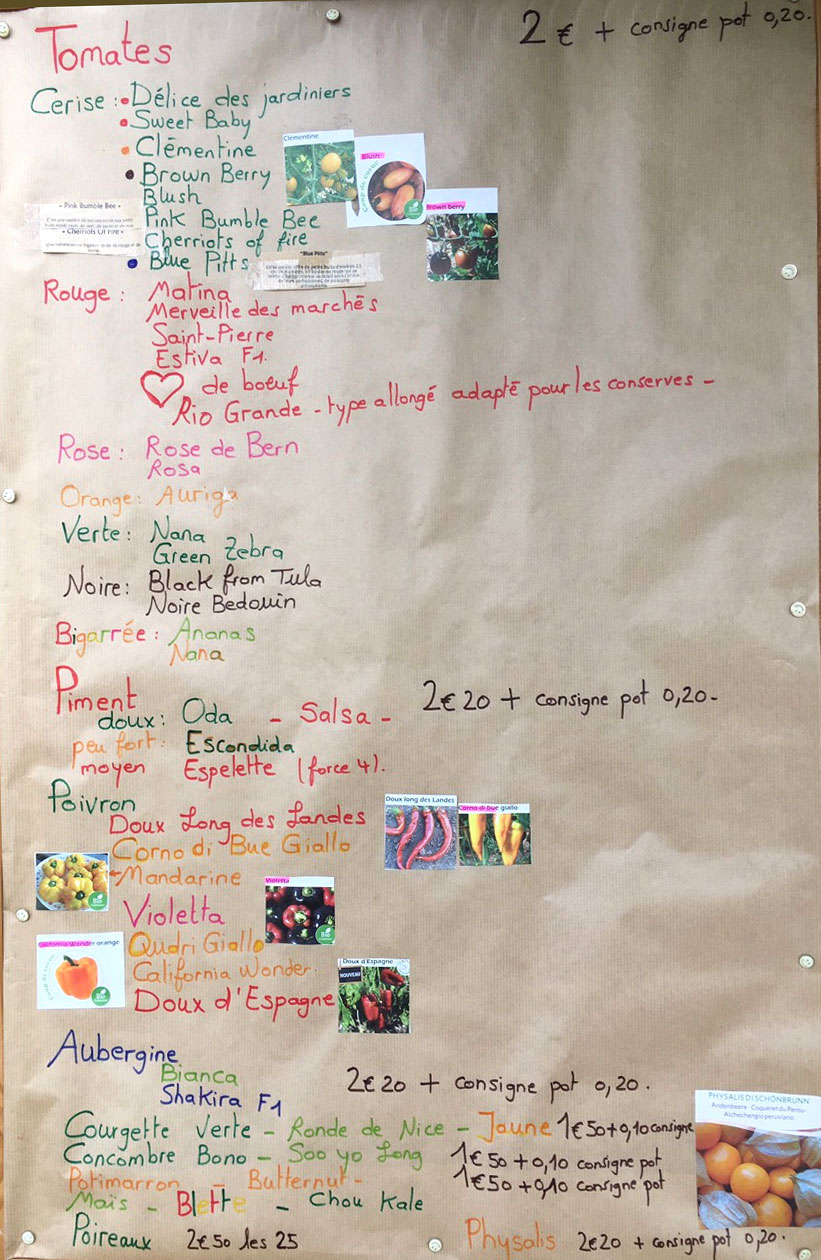 Tomates
2 € + consigne pot 0,20.
Cerise : Délice des jardiniers
Sweet Baby
Clémentine
Clémentine
Blush
Brown Berry
Brown berry
Blush
- Pink Bumble Bee -
Pink Bumble Bee
- Cherriots Of Fire -
Cherriots of fire
"Blue Pitts"
Blue Pitts
Rouge : Matina
Merveille des marchés
Saint-Pierre
Estiva F1.
♡ de boeuf
Rio Grande - type allongé adapté pour les conserves -
Rose : Rose de Bern
Rosa
Orange : Auriga
Verte : Nana
Green Zebra
Noire : Black from Tula
Noire Bedouin
Bigarrée : Ananas
Nana
Piment
2€20 + consigne pot 0,20-
doux : Oda - Salsa -
peu fort : Escondida
moyen Espelette (force 4).
Poivron
Doux long des Landes
Corno di bue giallo
Doux Long des Landes
Corno di Bue Giallo
Mandarine
Bio
Violetta
Violetta
California Wonder orange
Qudri Giallo
California Wonder
Doux d'Espagne
NOUVEAU
Doux d'Espagne
Aubergine
Bianca
2€20 + consigne pot 0,20.
Shakira F1
PHYSALIS DI SCHÖNBRUNN
Andenbeere Coqueret du Pérou
Alchechengio peruviano
Courgette Verte - Ronde de Nice - Jaune 1€50+0,10 consigne
Concombre Bono - Soo yo Long 1€50+0,10 consigne pot
Potimarron - Butternut - 1€50+0,10 consigne pot
Maïs - Blette - Chou Kale
Poireaux 2€50 les 25
Physalis 2€20 + consigne pot 0,20.